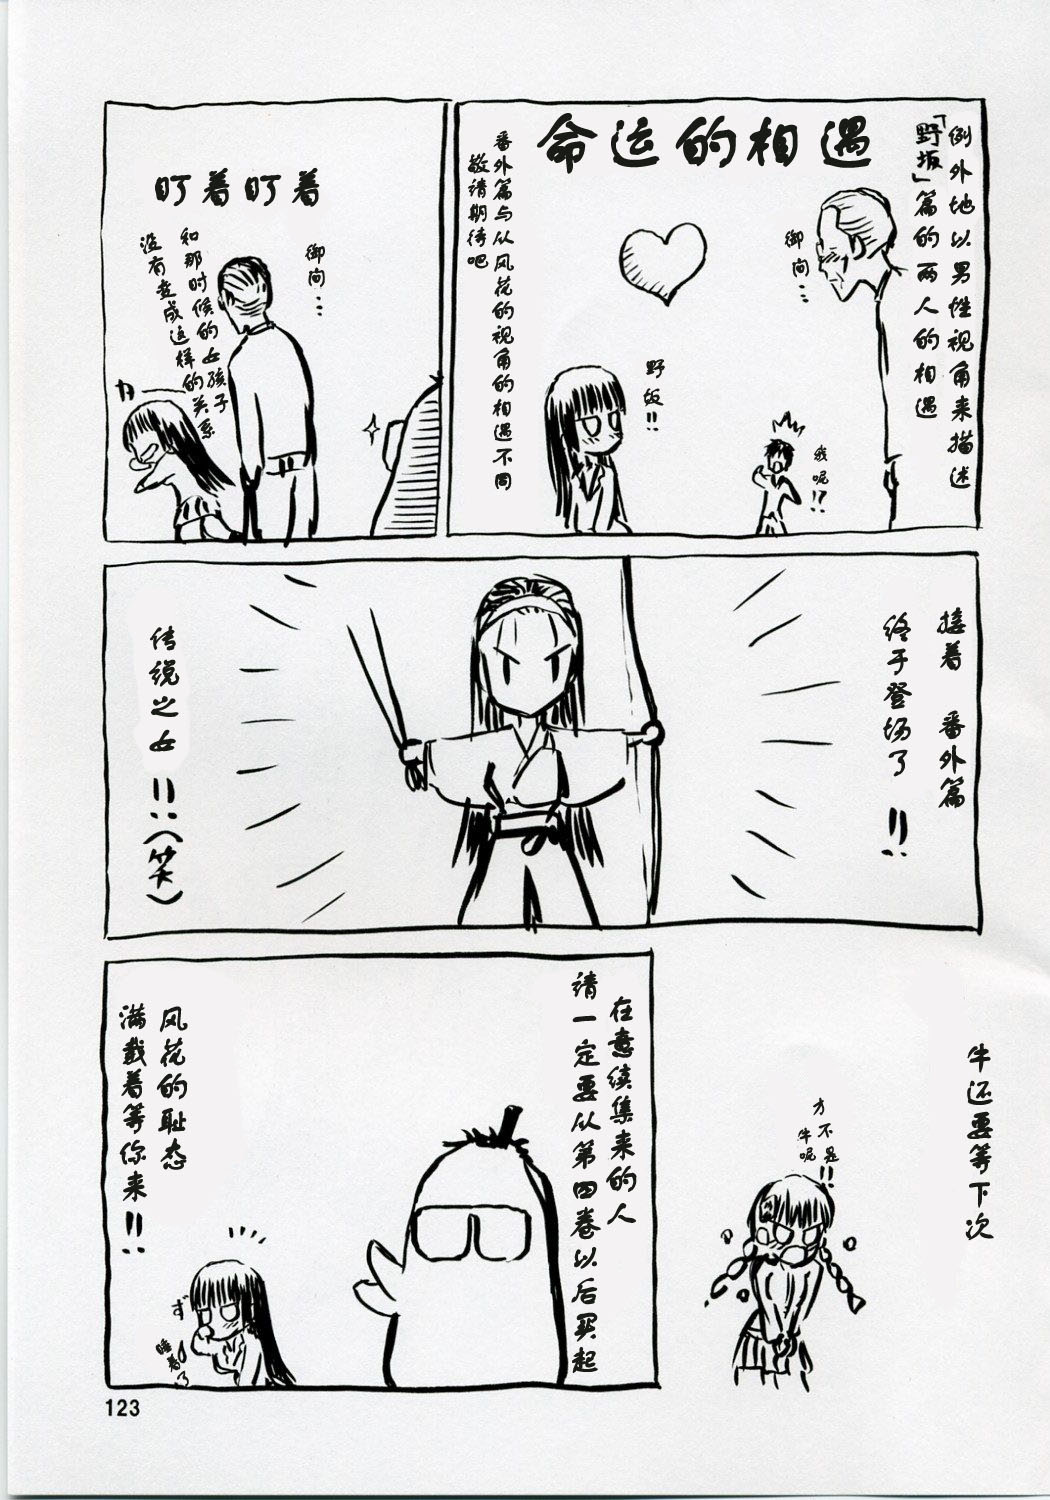 例外地以男性视角来描述
「野坂」篇的两人的相遇
命运的相遇
御间…
我呢!?
野坂!!
番外篇与从风花的视角的相遇不同
敬请期待吧
盯着盯着
御间…
和那时候的女孩子
没有变成这样的关系
接着 番外篇
终于登场了!!
传说之女!!(笑)
在意续集来的人
请一定要从第四卷以后买起
风花的耻态
满载着等你来!!
ず
睡着了
牛还要等下次
方不是!!
牛呢
123